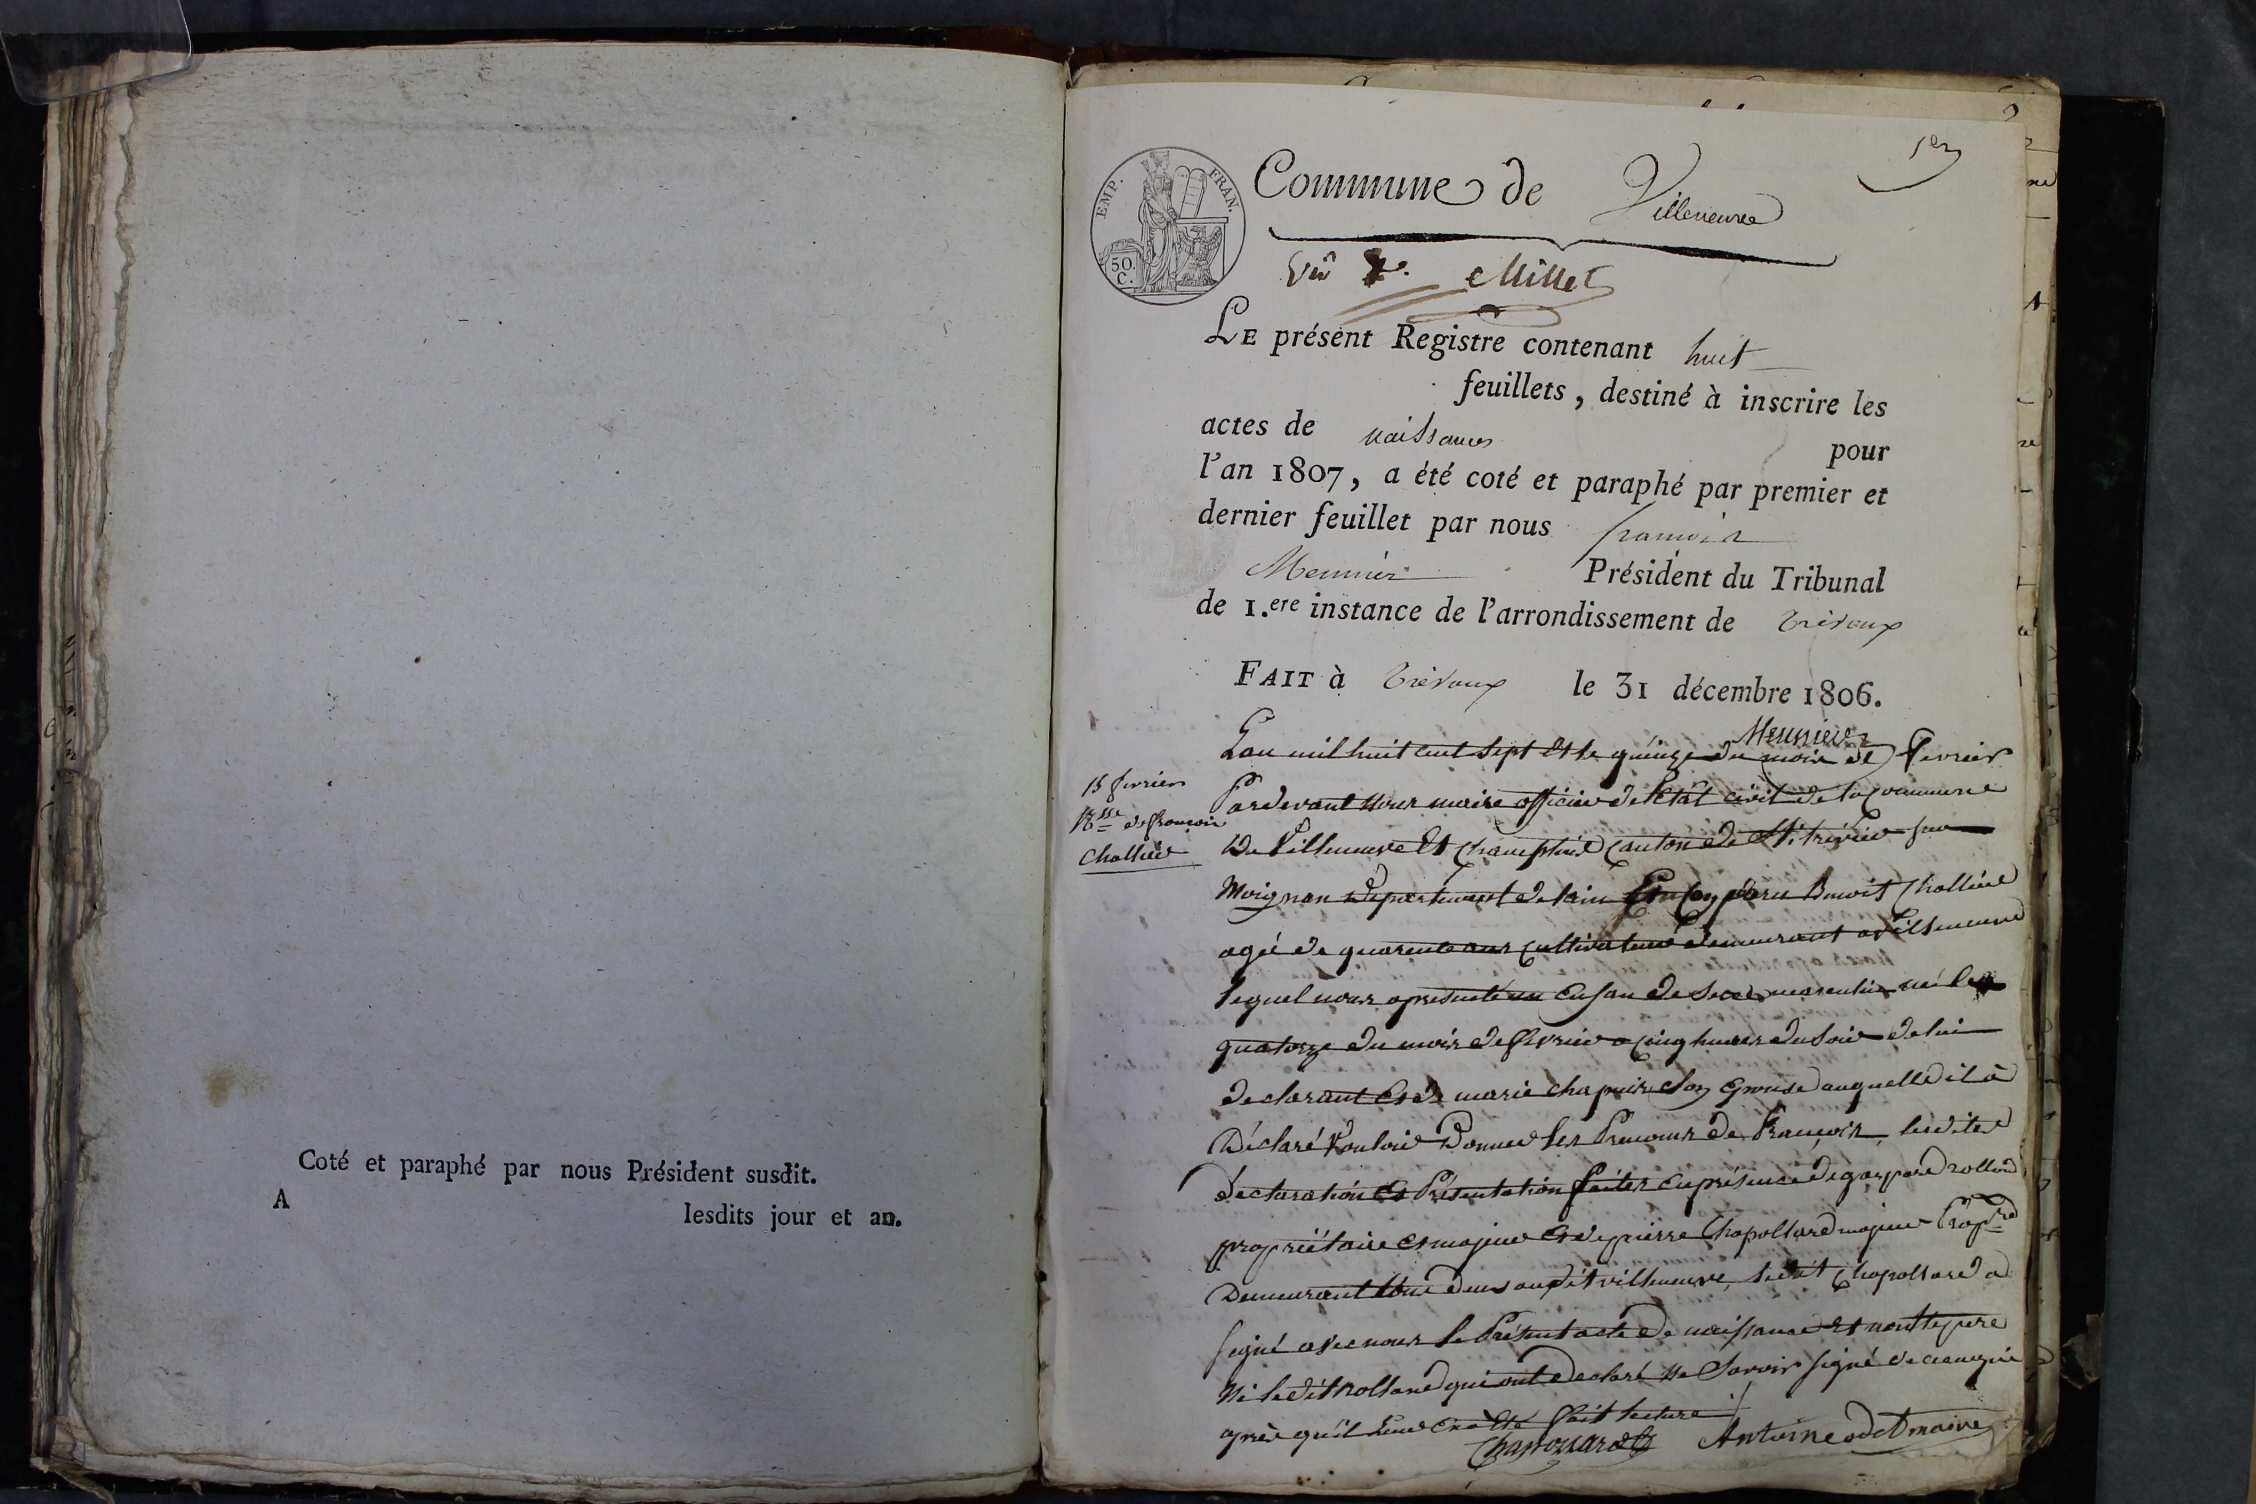 Coté et paraphé par nous Président susdit.
A lesdits jour et an.
1er
EMP. FRAN.
50.
C.
Commune de Villeneuve
Vu Millet
LE présent Registre contenant huit
feuillets, destiné à inscrire les
actes de naissances pour
l'an 1807, a été coté et paraphé par premier et
dernier feuillet par nous francois
Meunier Président du Tribunal
de 1.ere instance de l'arrondissement de Trévoux
FAIT à Trévoux le 31 décembre 1806.
Meunier
15 fevrier
de francois
Chollier
L'an mil huit cent sept et le quinze du mois de fevrier
Pardevant nous maire officier de l'état civil de la commune
de Villeneuve et canton de St. trivier sur
Moignan departement de lain Est Comparu Benoit Chollier
agé de quarente ans cultivateur demeurant a villeneuve
lequel nous a presenté un enfan de sexe masculin né le
quatorze du mois de fevrier a cinq heures du soir de lui
declarant et de marie chapuis son epouse auquelle il a
Déclaré Vouloir Donner les Prenoms de François lesdites
declaration et Presentation faites en présence de gaspard rolland
propriétaire et majeur et de pierre Chapollard majeur Prop.re
Demeurant tous deux audit villeneuve, ledit Chapollard a
signé avec nous le Présent acte de naissance et non le pere
Ni ledit Rolland qui ont declaré ne Savoir signé de ce enquis
après qu'il leur en a Eté fait lecture
Chapollard Antoine maire